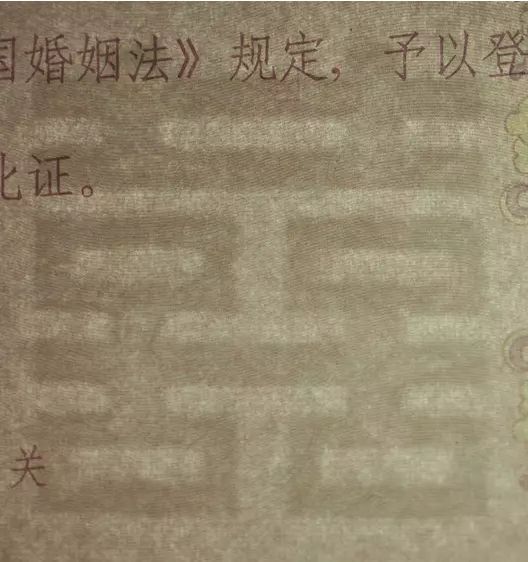 国婚姻法》规定，予以登
此证。
关